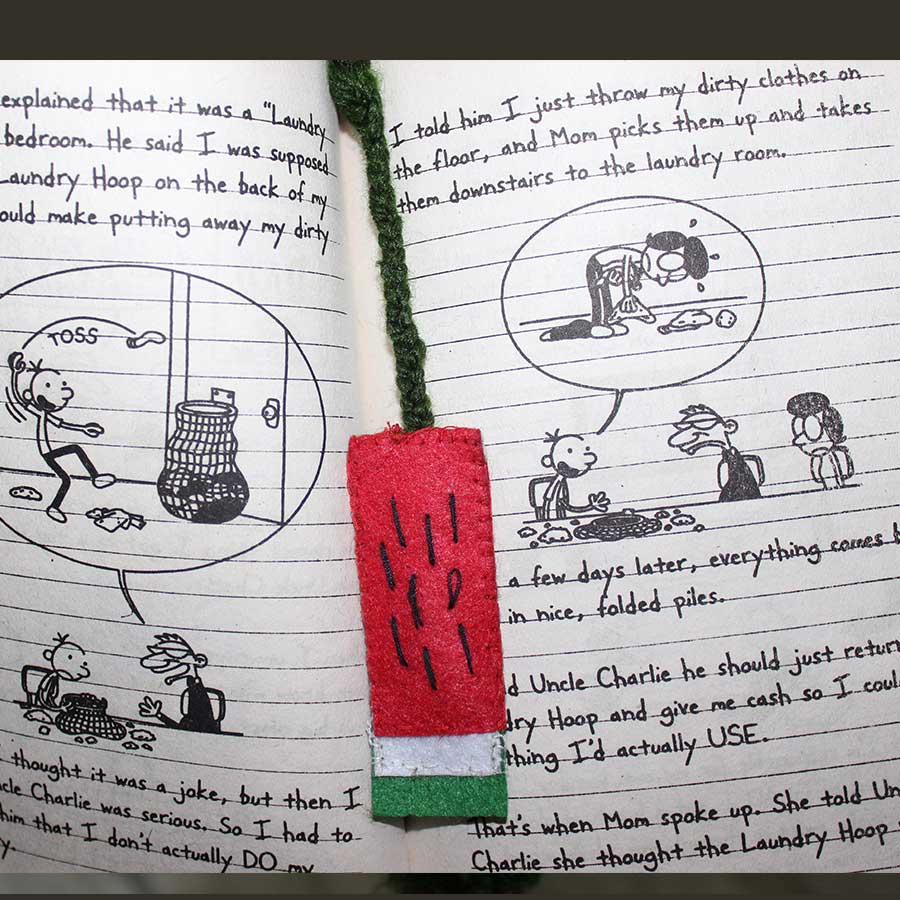 explained that it was a "Laundry
bedroom. He said I was supposed
Laundry Hoop on the back of my
ould make putting away my dirty
TOSS
thought it was a joke, but then I
cle Charlie was serious. So I had to
him that I don't actually DO my
y.
I told him I just throw my dirty clothes on
the floor, and Mom picks them up and takes
them downstairs to the laundry room.
a few days later, everything comes b
in nice, folded piles.
d Uncle Charlie he should just return
dry Hoop and give me cash so I coul
thing I'd actually USE.
That's when Mom spoke up. She told Un
Charlie she thought the Laundry Hoop